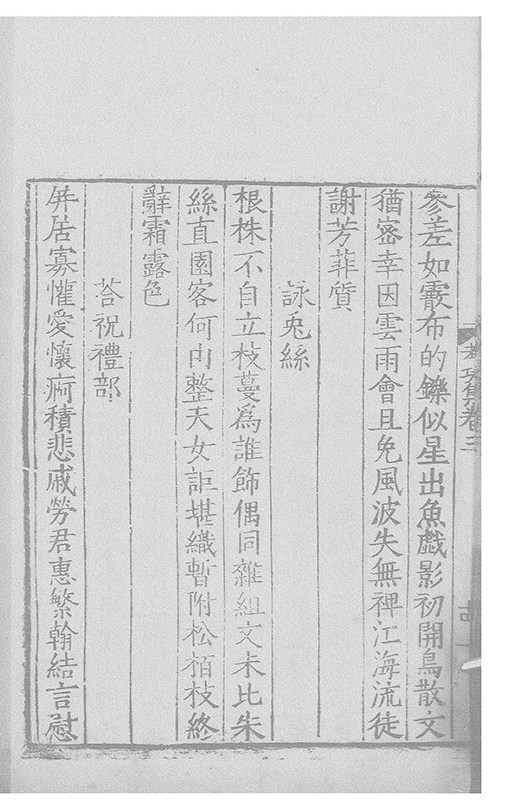 參差如霰布的皪似星出魚戲影初開鳥散文
猶密幸因雲雨會且免風波失無裨江海流徒
謝芳菲質
詠兎絲
根株不自立枝蔓爲誰飾偶同雜組文未比朱
絲直園客何由整天女詎堪織暫附松栢枝終
辭霜露色
荅祝禮部
屏居寡懽愛懷痾積悲戚勞君惠繁翰結言慰
集卷三